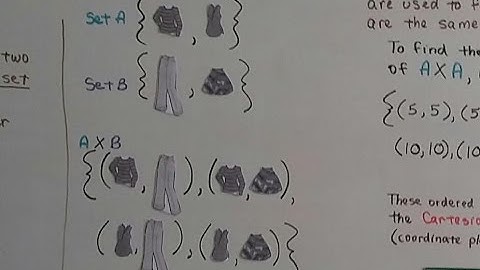 two
set
r
Set A { , }
Set B { , }
A X B
{( , ), ( , ),
( , ), ( , )}
are used to f
are the same
To find the
of A X A,
{(5, 5), (5
(10, 10), (10
These ordered
the Cartesia
(coordinate pl